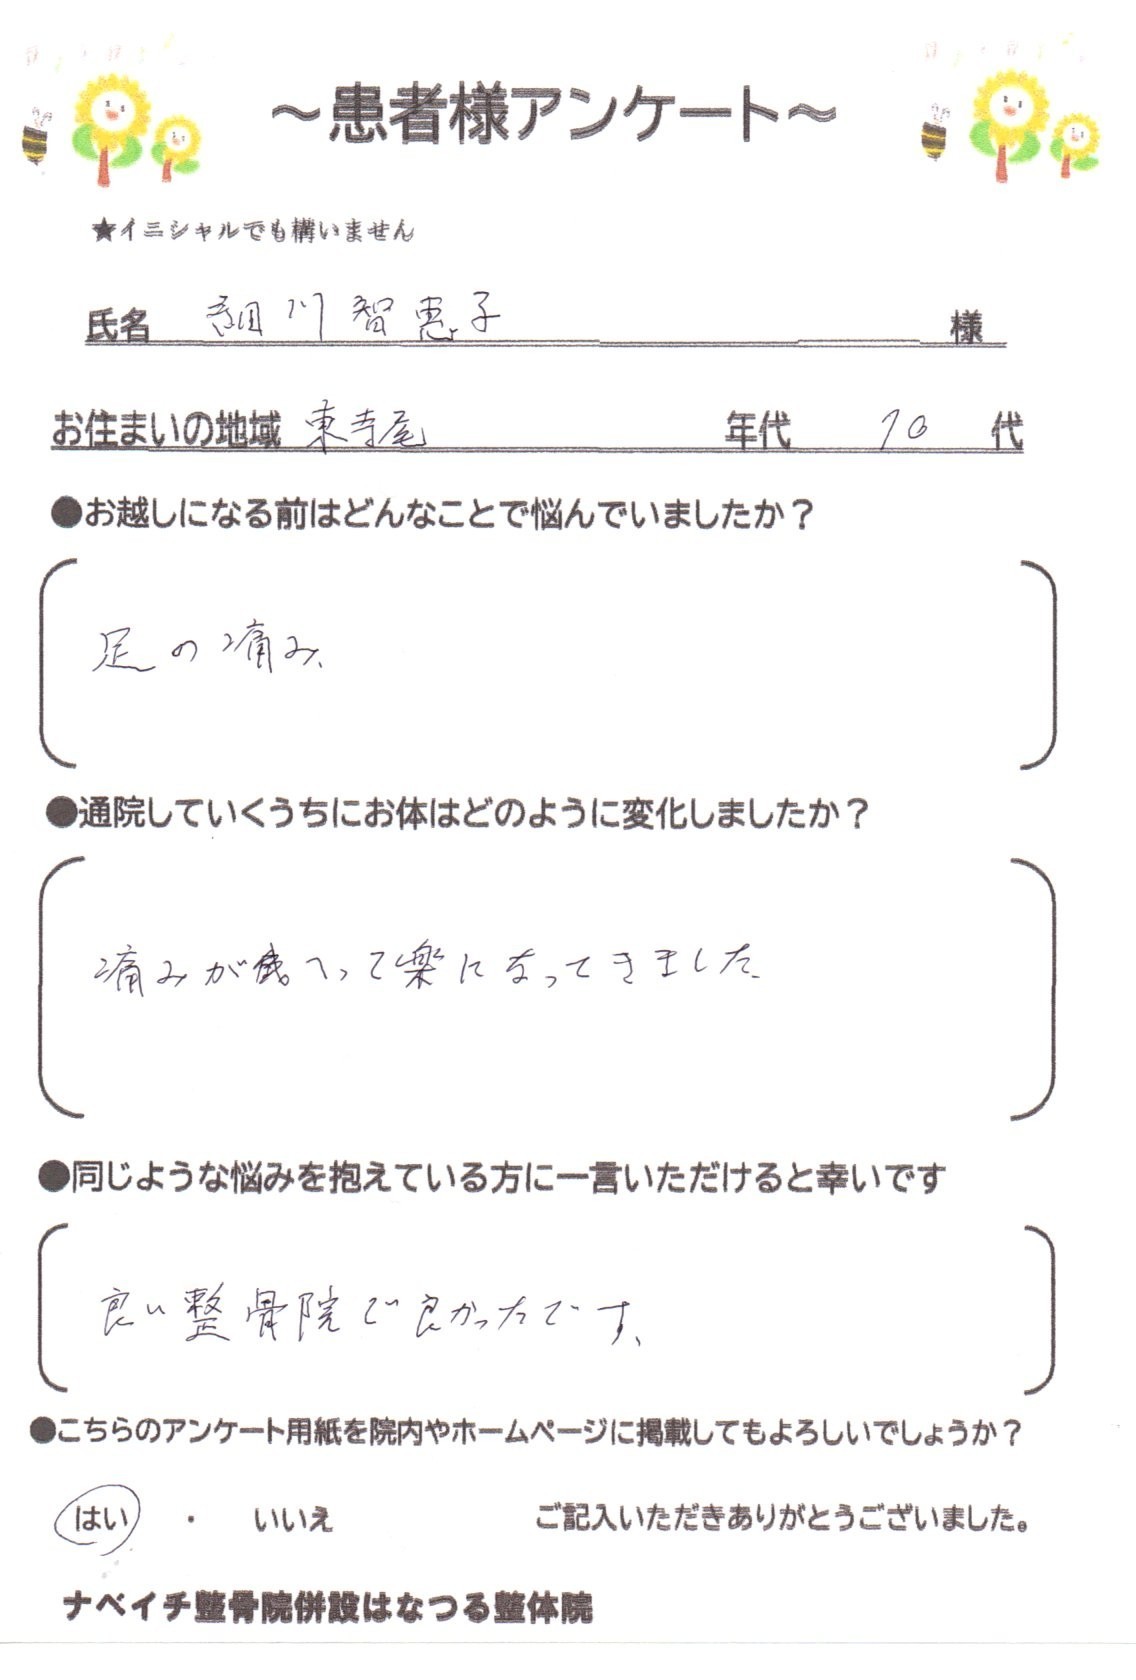 ～患者様アンケート～
★イニシャルでも構いません
氏名 細川智恵子 様
お住まいの地域 東寺尾 年代 70 代
●お越しになる前はどんなことで悩んでいましたか？
足の痛み、
●通院していくうちにお体はどのように変化しましたか？
痛みがへって楽になってきました
●同じような悩みを抱えている方に一言いただけると幸いです
良い整骨院で良かったです、
●こちらのアンケート用紙を院内やホームページに掲載してもよろしいでしょうか？
はい ・ いいえ ご記入いただきありがとうございました。
ナベイチ整骨院併設はなつる整体院